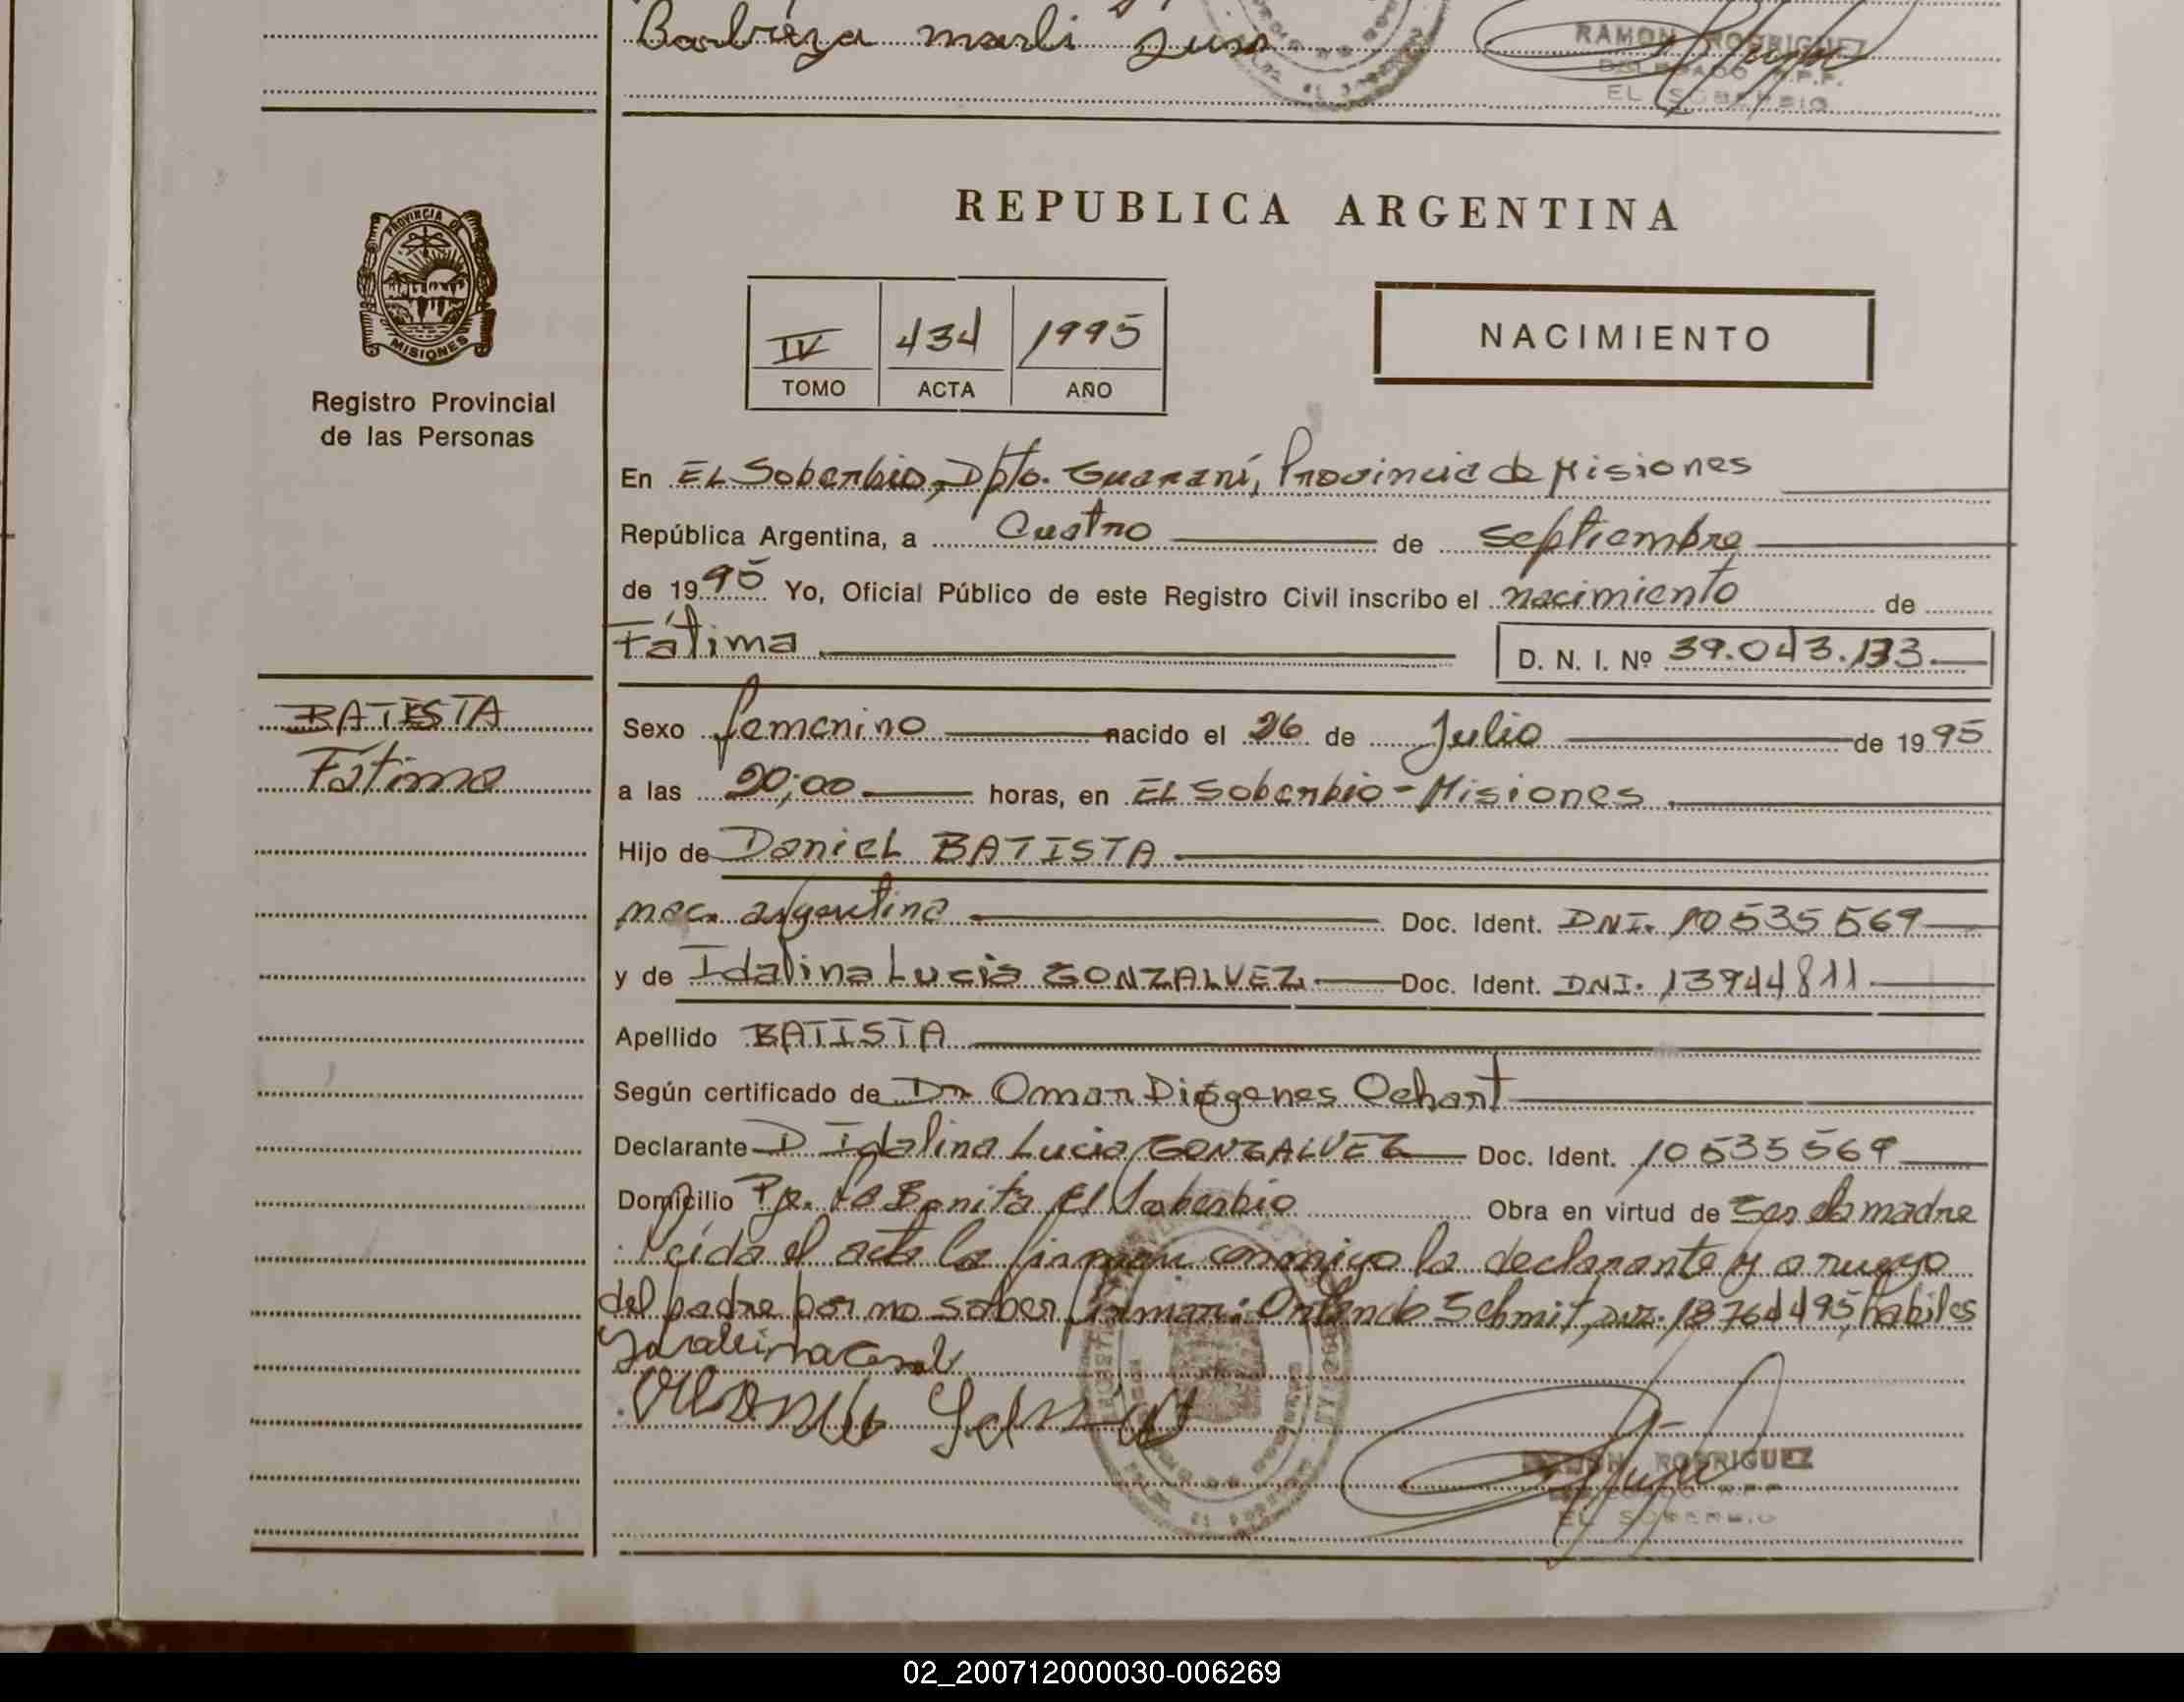 Barbreza marli
RAMON RODRIGUEZ
DELEGADO R.P.P.
EL SOBERBIO
PROVINCIA DE
MISIONES
REPUBLICA ARGENTINA
IV 434 1995
TOMO ACTA AÑO
NACIMIENTO
Registro Provincial
de las Personas
En EL Soberbio, Dpto. Guaraní, Provincia de Misiones
República Argentina, a Cuatro de septiembre
de 1995 Yo, Oficial Público de este Registro Civil inscribo el nacimiento de
Fátima D. N. I. Nº 39.043.133.
BATISTA
Fátima
Sexo femenino nacido el 26 de Julio de 1995
a las 20;00 horas, en EL Soberbio - Misiones
Hijo de Daniel BATISTA
nac. argentina Doc. Ident. DNI. 10535569
y de Idalina Lucia GONZALVEZ Doc. Ident. DNI. 13944811
Apellido BATISTA
Según certificado de Dr Omar Diógenes Ochart
Declarante D Idalina Lucia GONZALVEZ Doc. Ident. 10535569
Domicilio Pje. La Bonita El Soberbio Obra en virtud de ser la madre
Leída el acta la firman conmigo la declarante y a ruego
del padre por no saber firmar: Orlando Schmit, 18764495, habiles
RAMON RODRIGUEZ
DELEGADO R.P.P.
EL SOBERBIO
02_200712000030-006269